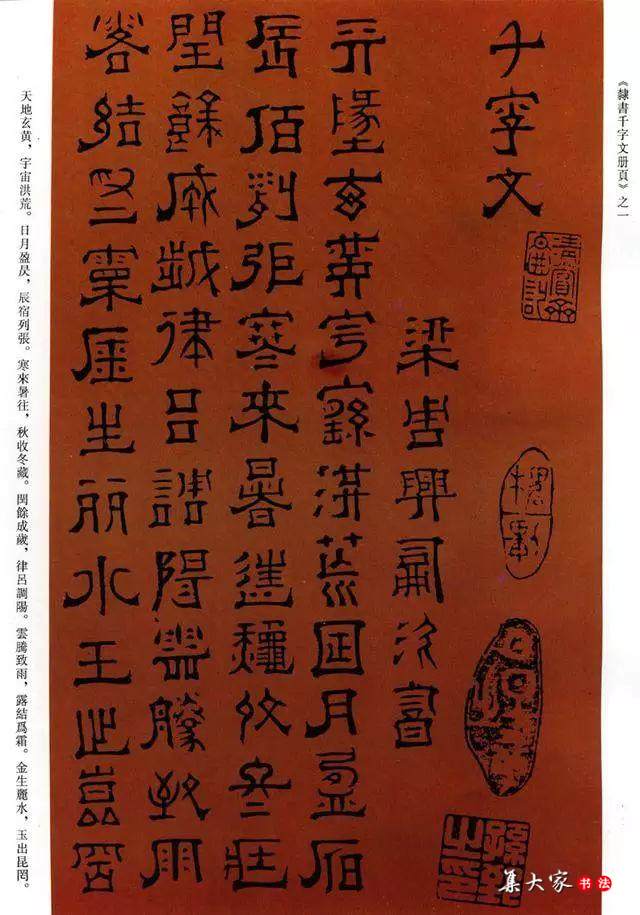 《隸書千字文册頁》之一
千字文
梁周興嗣次
天地玄黃宇宙洪荒日月盈昃
辰宿列張寒來暑往秋收冬藏
閏餘成歲律呂調陽雲騰致雨
露結爲霜金生麗水玉出崑岡
天地玄黃，宇宙洪荒。日月盈昃，辰宿列張。寒來暑往，秋收冬藏。閏餘成歲，律呂調陽。雲騰致雨，露結爲霜。金生麗水，玉出昆岡。
集大家书法